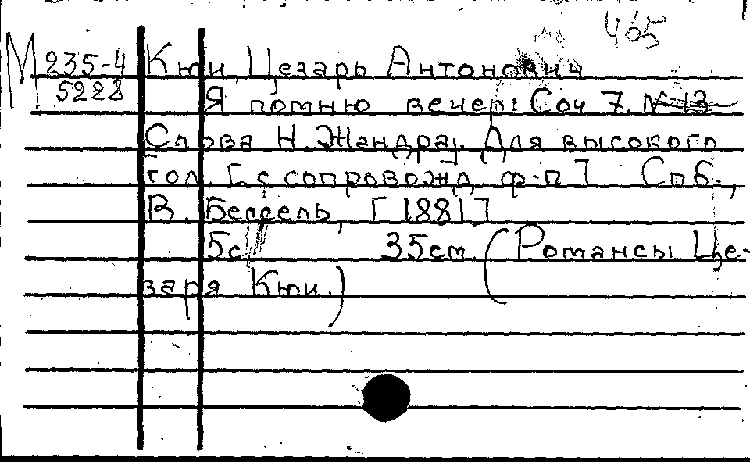 465
М 235-4 Кюи, Цезарь Антонович
5228 Я помню вечер: Соч 7. № 13
Слова Н. Жандра. Для высокого
гол. [с сопровожд. ф-п] Спб.,
В. Бессель, [1881]
5с 35см. (Романсы Це-
заря Кюи.)